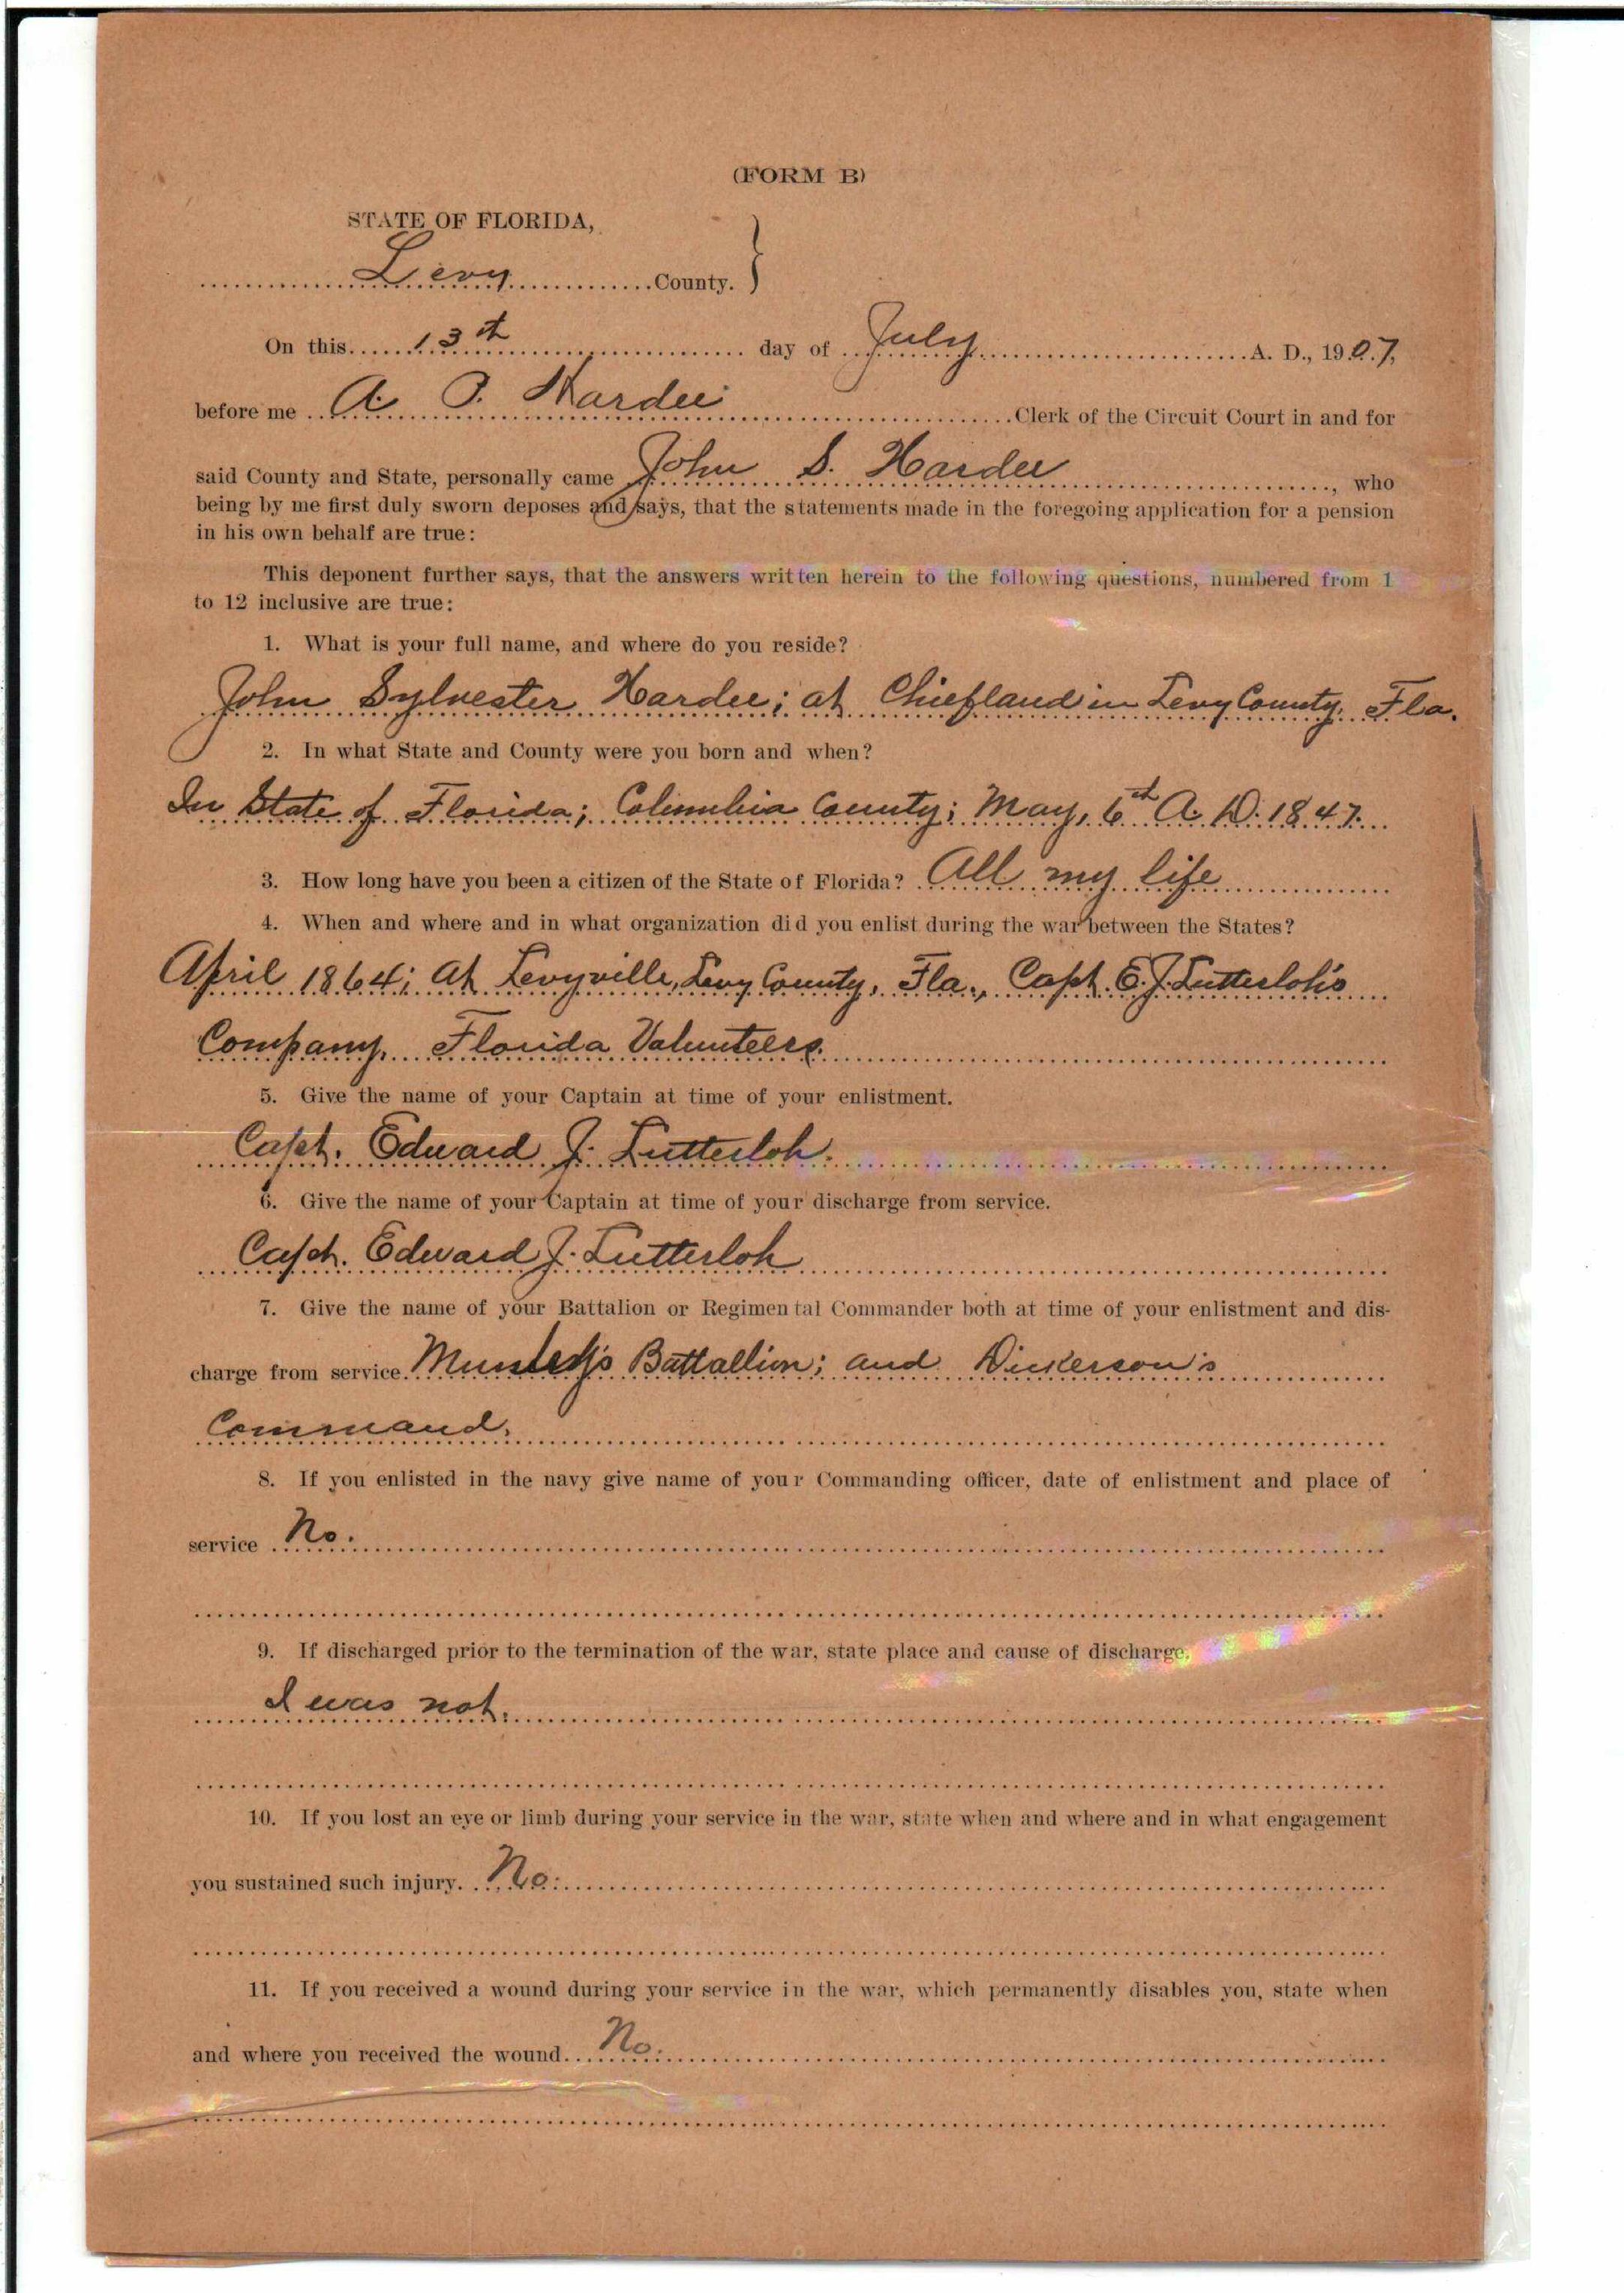 (FORM B)
STATE OF FLORIDA,
Levy County.
On this 13th day of July A. D., 1907,
before me A. P. Hardee Clerk of the Circuit Court in and for
said County and State, personally came John S. Hardee, who
being by me first duly sworn deposes and says, that the statements made in the foregoing application for a pension
in his own behalf are true:
This deponent further says, that the answers written herein to the following questions, numbered from 1
to 12 inclusive are true:
1. What is your full name, and where do you reside?
John Sylvester Hardee; at Chiefland in Levy County, Fla.
2. In what State and County were you born and when?
In State of Florida; Columbia County; May, 6th A. D. 1847.
3. How long have you been a citizen of the State of Florida? All my life
4. When and where and in what organization did you enlist during the war between the States?
April 1864; at Levyville, Levy County, Fla., Capt. E. J. Lutterloh's
Company, Florida Volunteers.
5. Give the name of your Captain at time of your enlistment.
Capt. Edward J. Lutterloh.
6. Give the name of your Captain at time of your discharge from service.
Capt. Edward J. Lutterloh
7. Give the name of your Battalion or Regimental Commander both at time of your enlistment and dis-
charge from service Battallion; and Dickerson's
Command.
8. If you enlisted in the navy give name of your Commanding officer, date of enlistment and place of
service No.
9. If discharged prior to the termination of the war, state place and cause of discharge.
I was not.
10. If you lost an eye or limb during your service in the war, state when and where and in what engagement
you sustained such injury. No.
11. If you received a wound during your service in the war, which permanently disables you, state when
and where you received the wound. No.